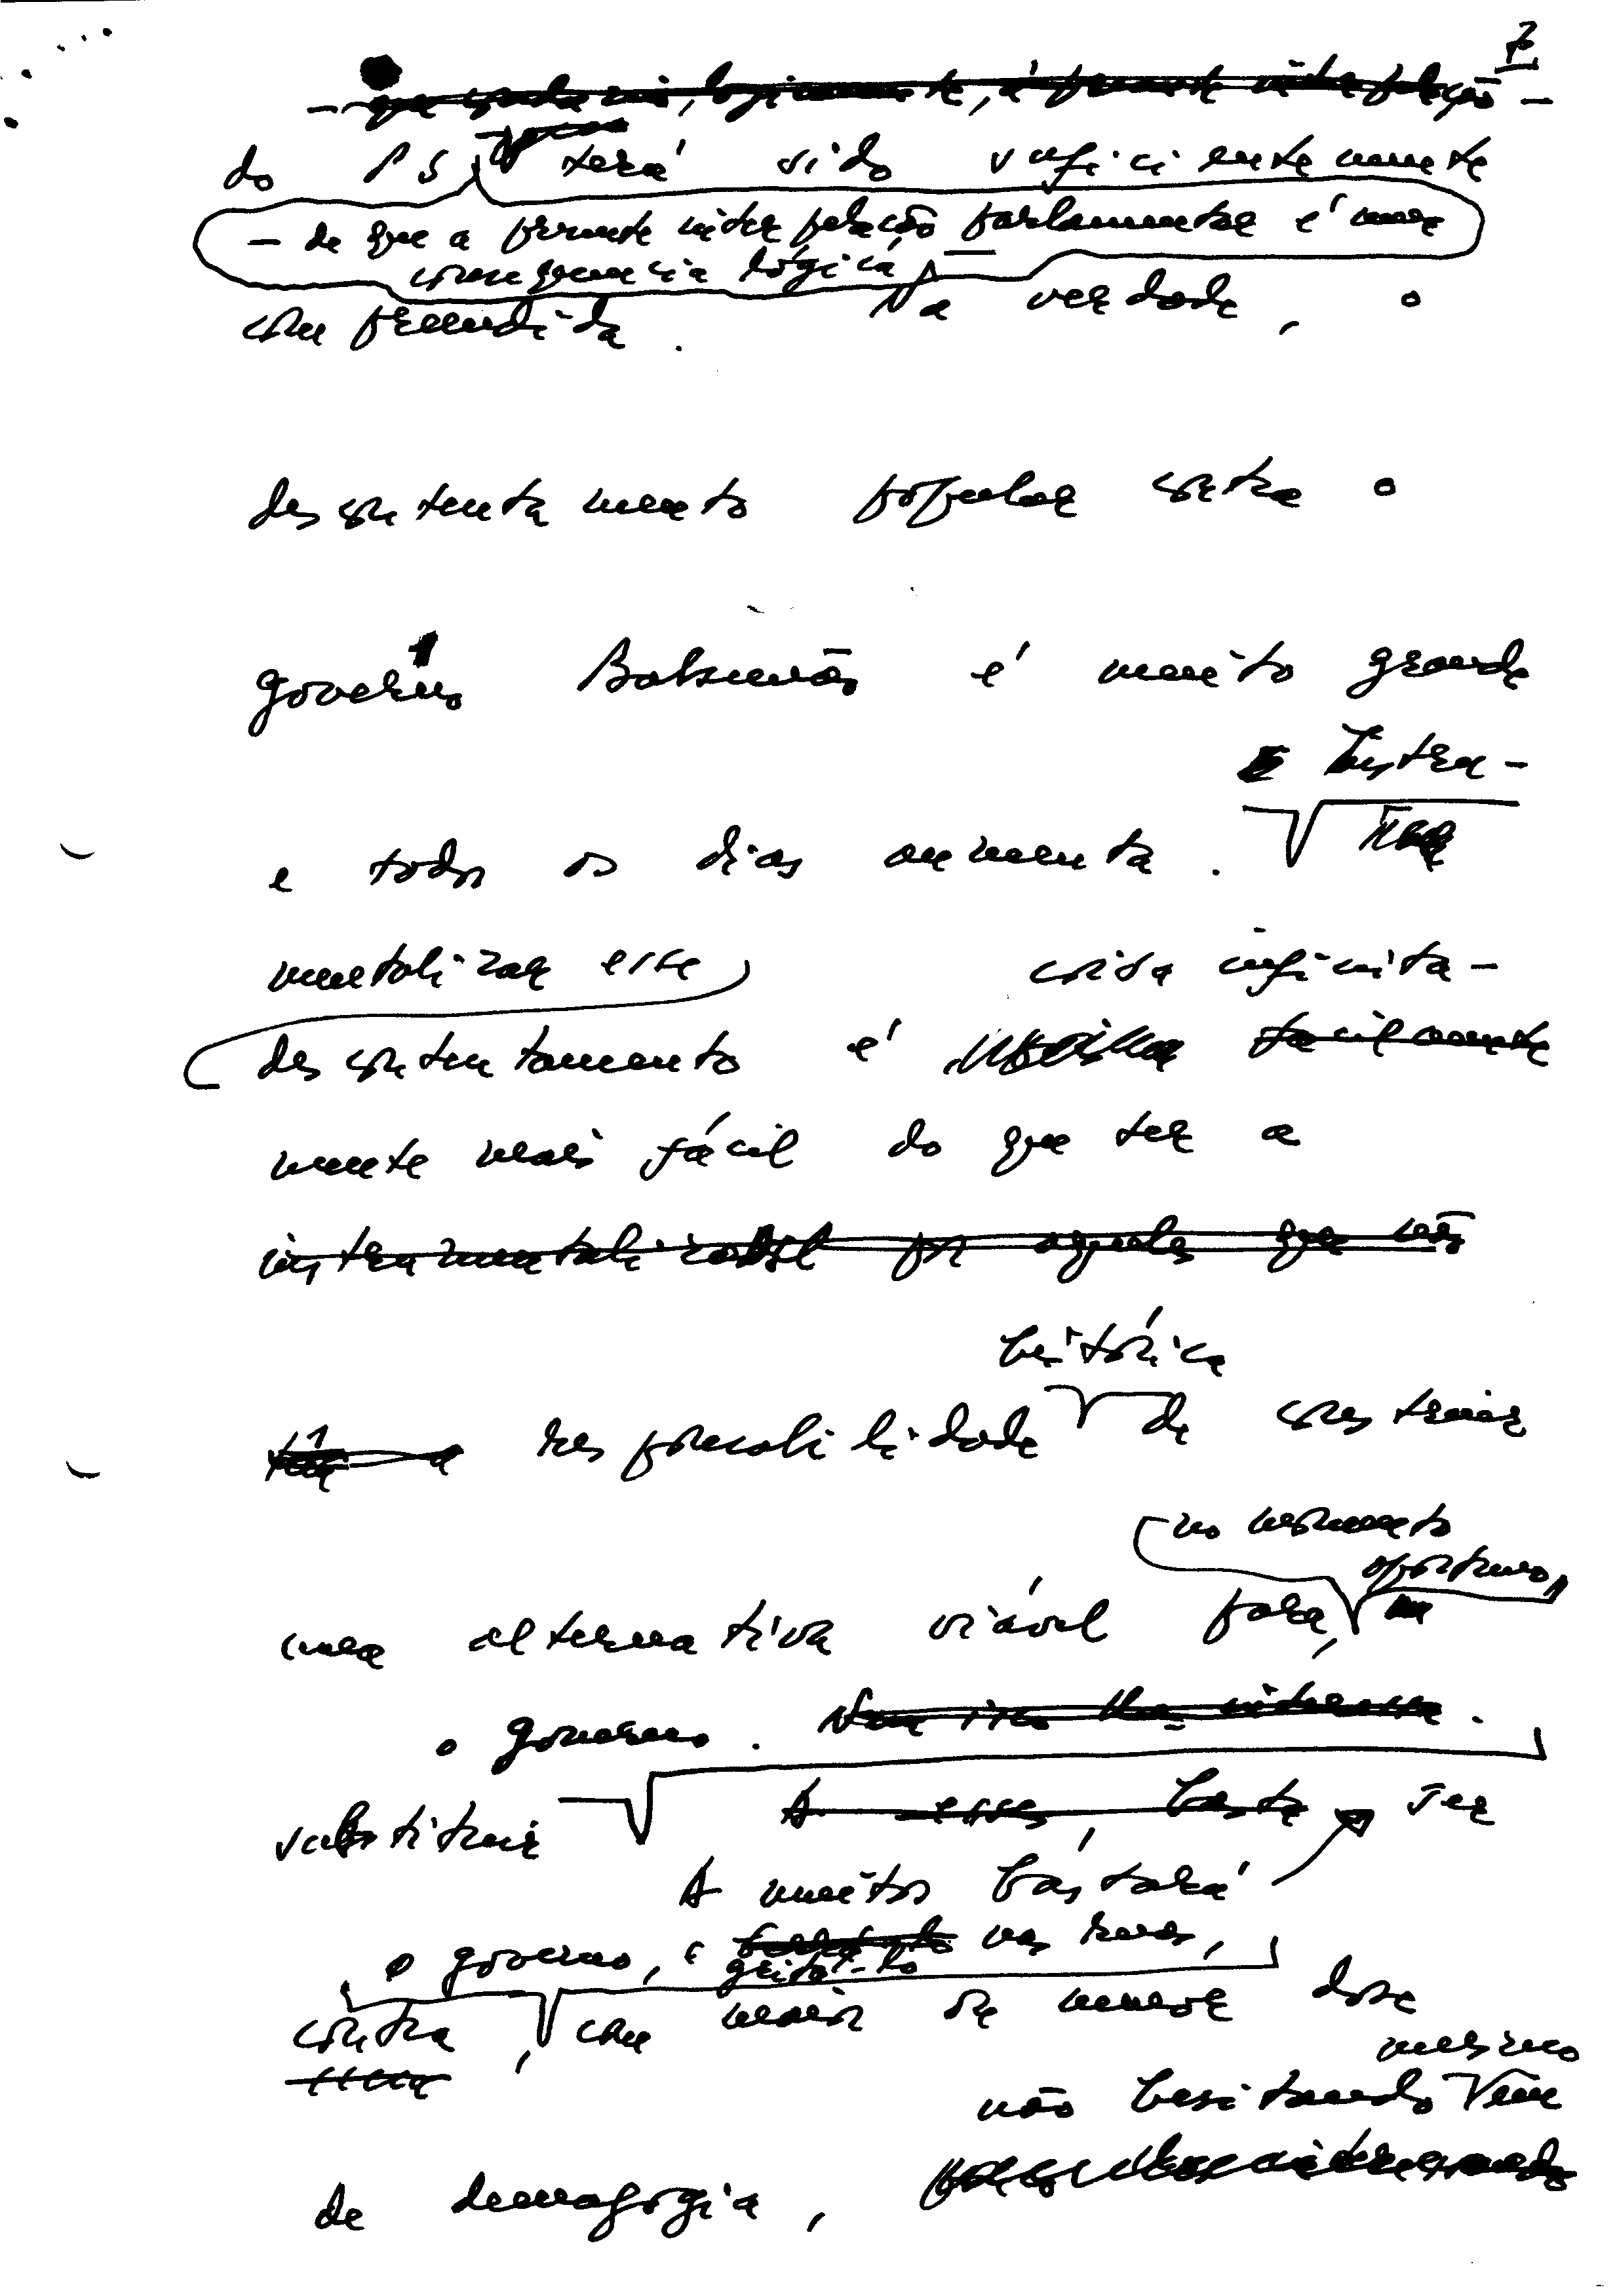 7
do PS terá sido suficientemente
— de que a presente interpelação parlamentar é uma
consequência lógica, —
compreendida. Na verdade, o
descontentamento popular contra o
governo Balsemão é muito grande
e todos os dias aumenta. Instru-
mentalizar esse coisa infinita-
descontentamento é
mente mais fácil do que ter a
histórica
responsabilidade de construir
no momento
oportuno,
uma alternativa viável para,
o governo.
substituir
A muitos bastará ser
o governo, e gritá-lo nas ruas,
contra, com maior ou menor dose
mesmo
não hesitando em
de demagogia,